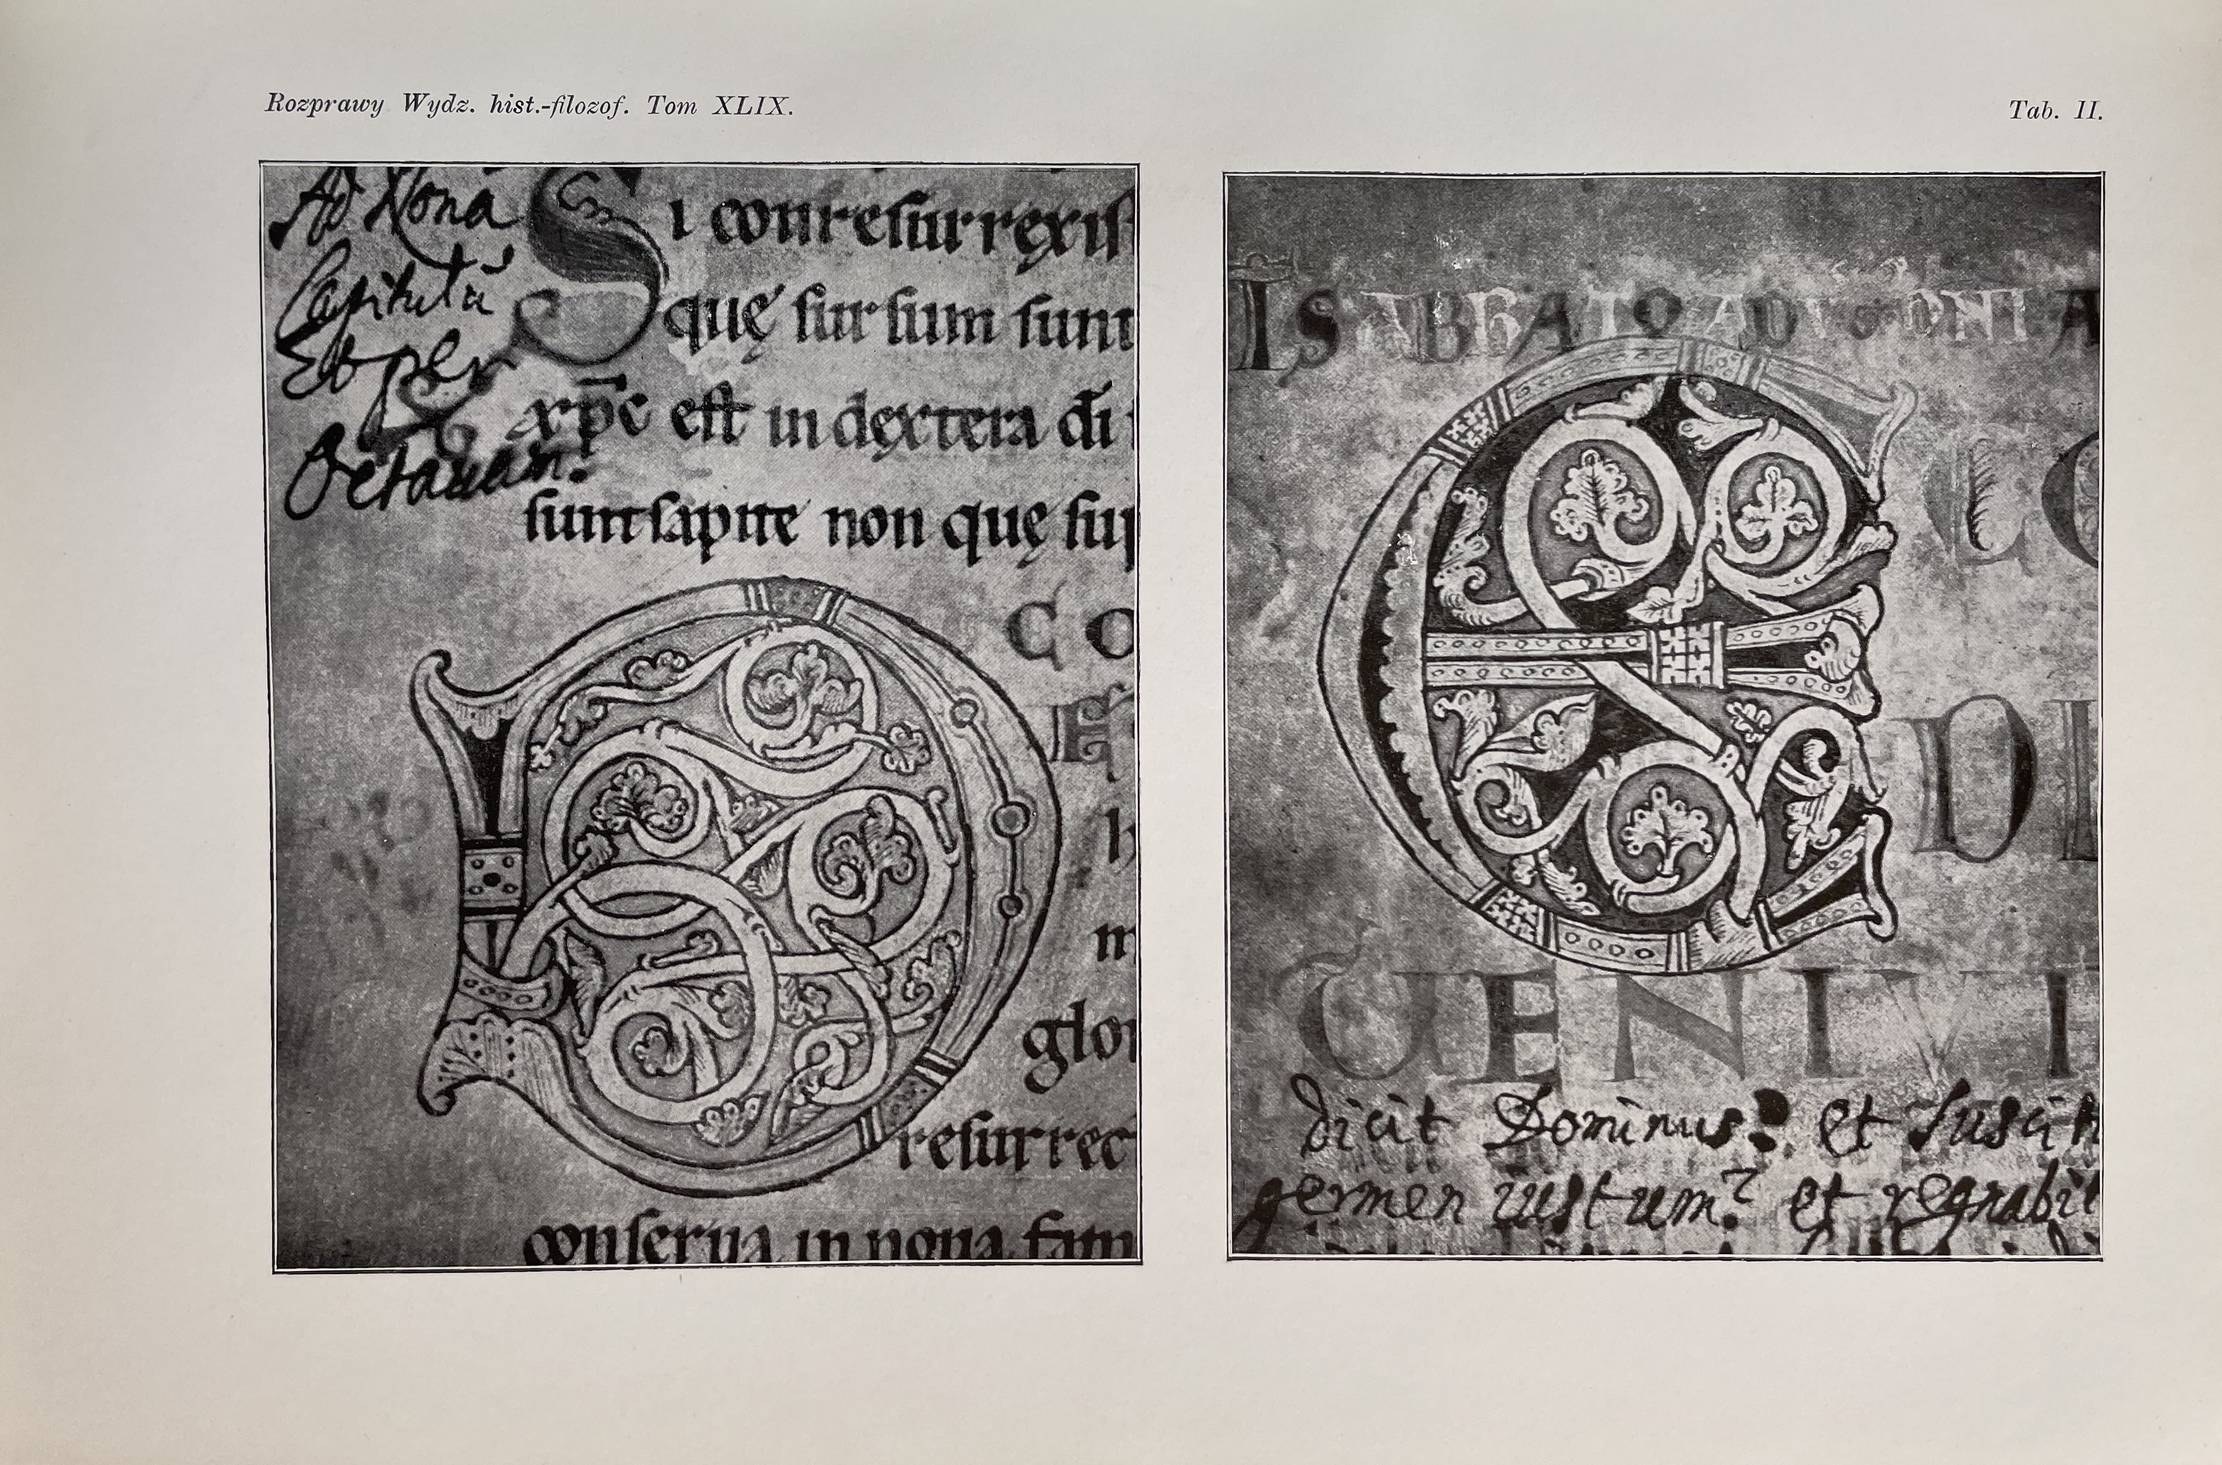 Rozprawy Wydz. hist.-filozof. Tom XLIX.
Tab. II.
Ad Nonã
Capitulũ
Et per
Octauam.
Si conresurrexist
quę sursum sunt
xp̅c est in dextera di̅
sunt sapite non quę sup
CO
h
m
glor
resurrec
conserua in noua fam
IS ABBATO
DI
UENIU
dicit Dominus: et suscit
germen iustum: et regnabit